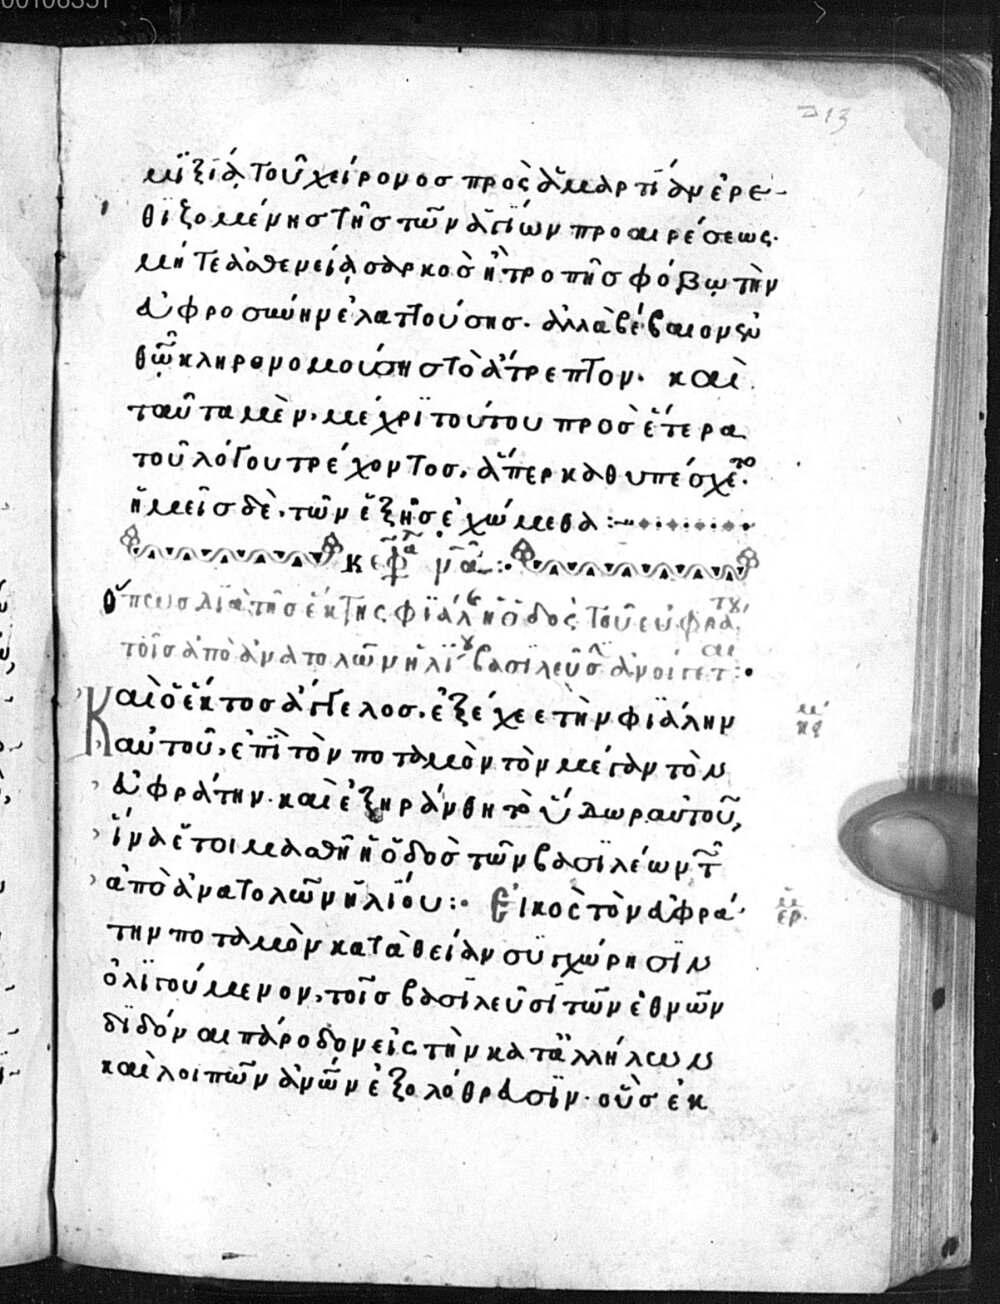 μίξία τοῦ χείρονοσ προς ἁμαρτίαν ἐρε-
θϊζομένησ τῆσ τῶν ἁγίων προαιρέσεως.
μήτε ἀσθενεία σαρκὸσ ἢ τροπῆσ φόβω τὴν
εὐφροσύνην ἐλαττούσησ. ἀλλὰ βέβαιον
κληρονομούσησ τὸ ἄτρεπτον. καὶ
ταῦτα μὲν, μέχρϊ τούτου προσ ἕτερα
τοῦ λόγου τρέχοντοσ, ἅπερ καθυπέσχετο.
ἡμεῖσ δὲ, τῶν ἑξῆσ ἐχώμεθα :-
κεφ να :·
Ὅπωσ διὰ τῆσ ἕκτης φϊάλης ἡ ὁδὸς τοῦ εὐφράτου
τοῖσ ἀπὸ ἀνατολῶν ἡλίου βασϊλεῦσιν ἀνοίγεται :·
Καὶ ὁ ἕκτοσ ἄγγελοσ, ἐξέχεε τὴν φϊάλην
αὐτοῦ, ἐπῒ τὸν ποταμὸν τὸν μέγαν τὸν
εὐφράτην. καὶ ἐξηράνθη τὸ ὕδωρ αὐτοῦ,
ἵνα ἑτοιμασθῆ ἡ ὁδὸσ τῶν βασϊλέων τῶν
ἀπὸ ἀνατολῶν ἡλίου :· Εἰκὸς τὸν εὐφρά-
την ποταμὸν κατὰ θείαν συγχώρησϊν
ὀλϊγούμενον, τοῖσ βασϊλεῦσϊ τῶν ἐθνῶν
δϊδόναι πάροδον εἰς τὴν κατ ἀλλήλων
καὶ λοιπῶν ἀνῶν ἐξολόθρευσϊν. οὓσ ἐκ